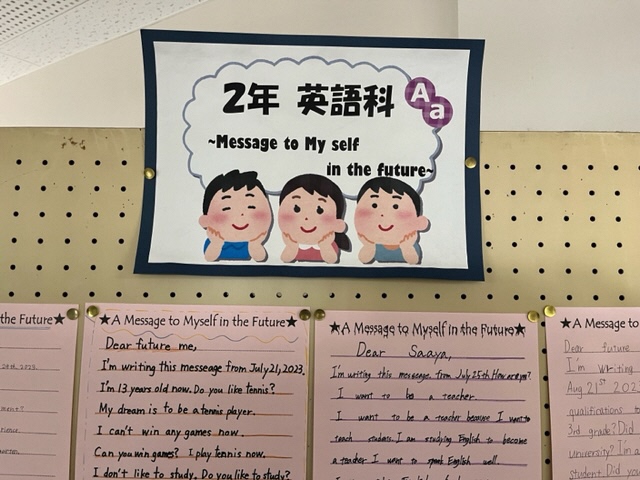 2年 英語科 Aa
~Message to My self
in the future~
the Future★
★A Message to Myself in the Future★
Dear future me,
I'm writing this messeage from July 21, 2023.
I'm 13 years old now. Do you like tennis?
My dream is to be a tennis player.
I can't win any games now.
Can you win games? I play tennis now.
I don't like to study. Do you like to study?
★A Message to Myself in the Future★
Dear Saaya,
I'm writing this message from July 25th. How are you?
I want to be a teacher.
I want to be a teacher because I want to
teach students. I am studying English to become
a teacher. I want to speak English well.
★A Message to
Dear future
I'm writing
Aug 21st 202
qualifications
3rd grade? Did
university? I'm a
student. Did yo